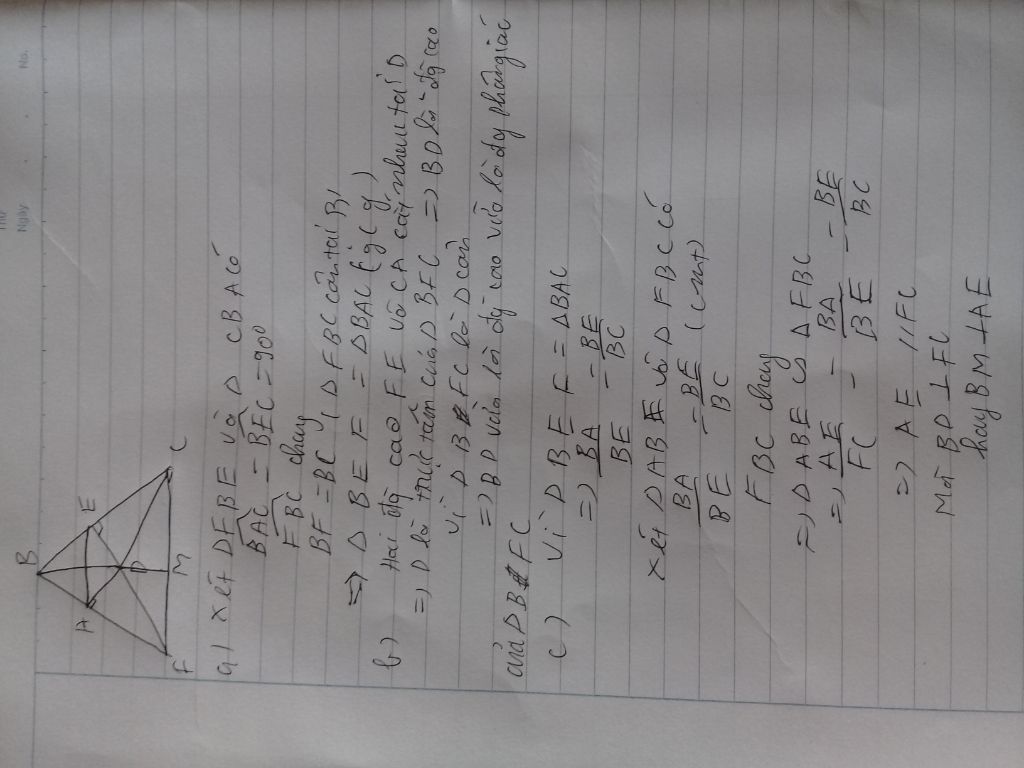 No.
Ngày
B
A
E
D
F
M
C
a) Xét Δ FBE và Δ CBA có
BAC = BEC = 90°
FBC chung
BF = BC (Δ FBC cân tại B)
=> Δ BEF = Δ BAC (
b) Hai đg cao FE và CA cắt nhau tại D
=> D là trực tâm của Δ BFC => BD là đg cao
Vì Δ BFC là Δ cân
=> BD vừa là đg cao vừa là đg phân giác
của Δ BFC
c) Vì Δ BEF = Δ BAC
=> BA/BE = BE/BC
Xét Δ ABE và Δ FBC có
BA/BE = BE/BC (cmt)
FBC chung
=> Δ ABE ∽ Δ FBC
=> AE/FC = BA/BE = BE/BC
=> AE // FC
Mà BD ⊥ FC
hay BM ⊥ AE